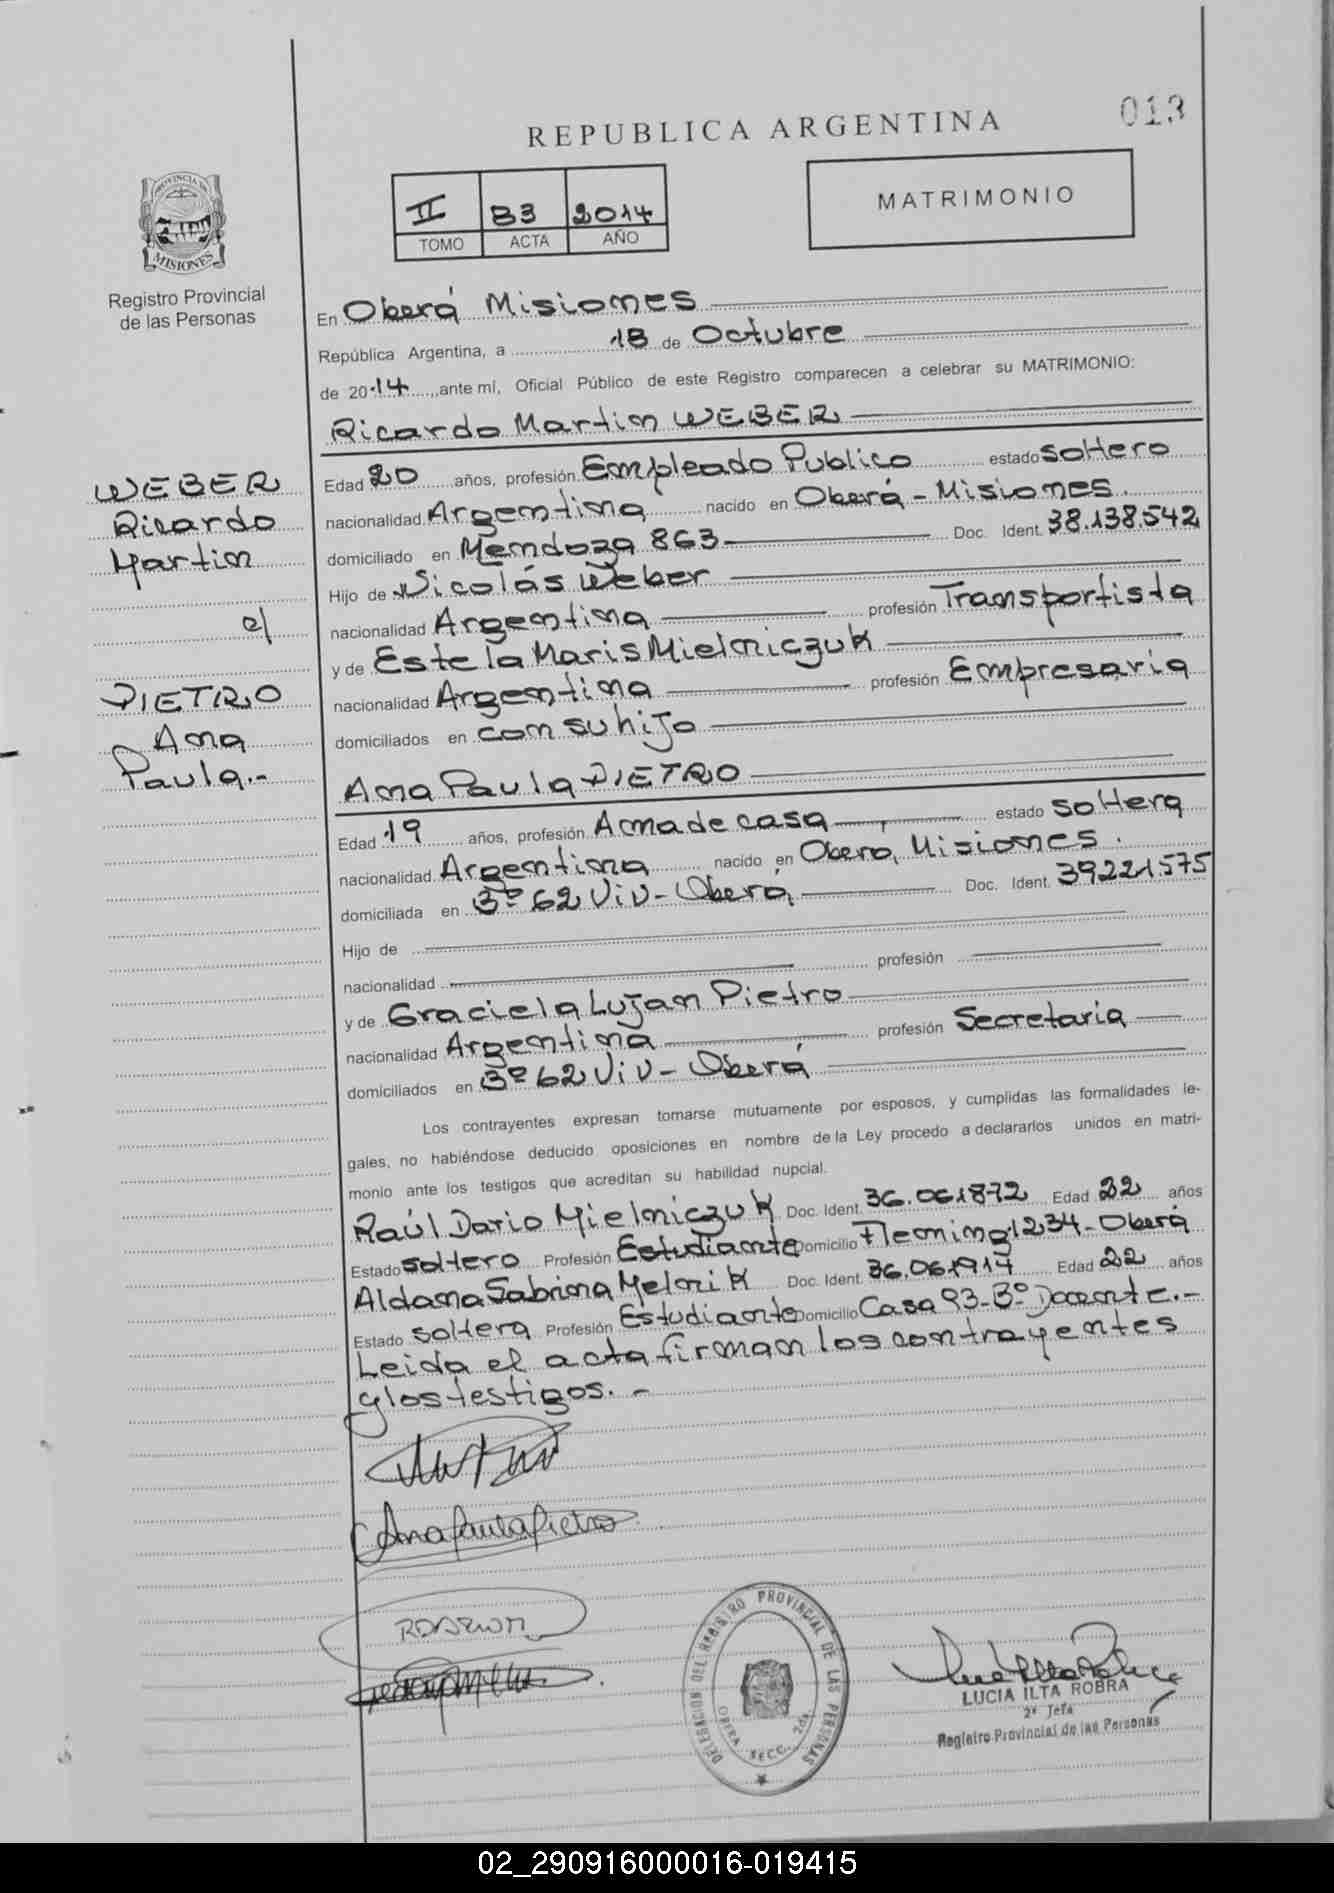 013
REPUBLICA ARGENTINA
II 83 2014
TOMO ACTA AÑO
MATRIMONIO
PROVINCIA DE
MISIONES
Registro Provincial
de las Personas
WEBER
Ricardo
Martin
c/
PIETRO
Ana
Paula.-
En Oberá Misiones
República Argentina, a 18 de Octubre
de 2014, ante mí, Oficial Público de este Registro comparecen a celebrar su MATRIMONIO:
Ricardo Martin WEBER
Edad 20 años, profesión Empleado Publico estado soltero
nacionalidad Argentina nacido en Oberá - Misiones.
domiciliado en Mendoza 863 Doc. Ident. 38.138.542
Hijo de Nicolás Weber
nacionalidad Argentina profesión Transportista
y de Estela Maris Mielniczuk
nacionalidad Argentina profesión Empresaria
domiciliados en con su hijo
Ana Paula PIETRO
Edad 19 años, profesión Ama de casa estado soltera
nacionalidad Argentina nacido en Obera, Misiones.
domiciliada en 3º 62 Viv - Oberá Doc. Ident. 39221.575
Hijo de
nacionalidad profesión
y de Graciela Lujan Pietro
nacionalidad Argentina profesión Secretaria
domiciliados en 3º 62 Viv - Oberá
Los contrayentes expresan tomarse mutuamente por esposos, y cumplidas las formalidades le-
gales, no habiéndose deducido oposiciones en nombre de la Ley procedo a declararlos unidos en matri-
monio ante los testigos que acreditan su habilidad nupcial.
Raúl Dario Mielniczuk Doc. Ident. 36.061.872 Edad 22 años
Estado soltero Profesión Estudiante Domicilio Fleming 1234 - Oberá
Aldana Sabrina Melnik Doc. Ident. 36.061.917 Edad 22 años
Estado soltera Profesión Estudiante Domicilio Casa 93 - 3º Docente.-
Leida el acta firman los contrayentes
y los testigos.-
Ana Paula Pietro
DELEGACION DEL REGISTRO PROVINCIAL DE LAS PERSONAS
OBERA SECC. 2da.
LUCIA ILTA ROBRA
2ª Jefa
Registro Provincial de las Personas
02_290916000016-019415